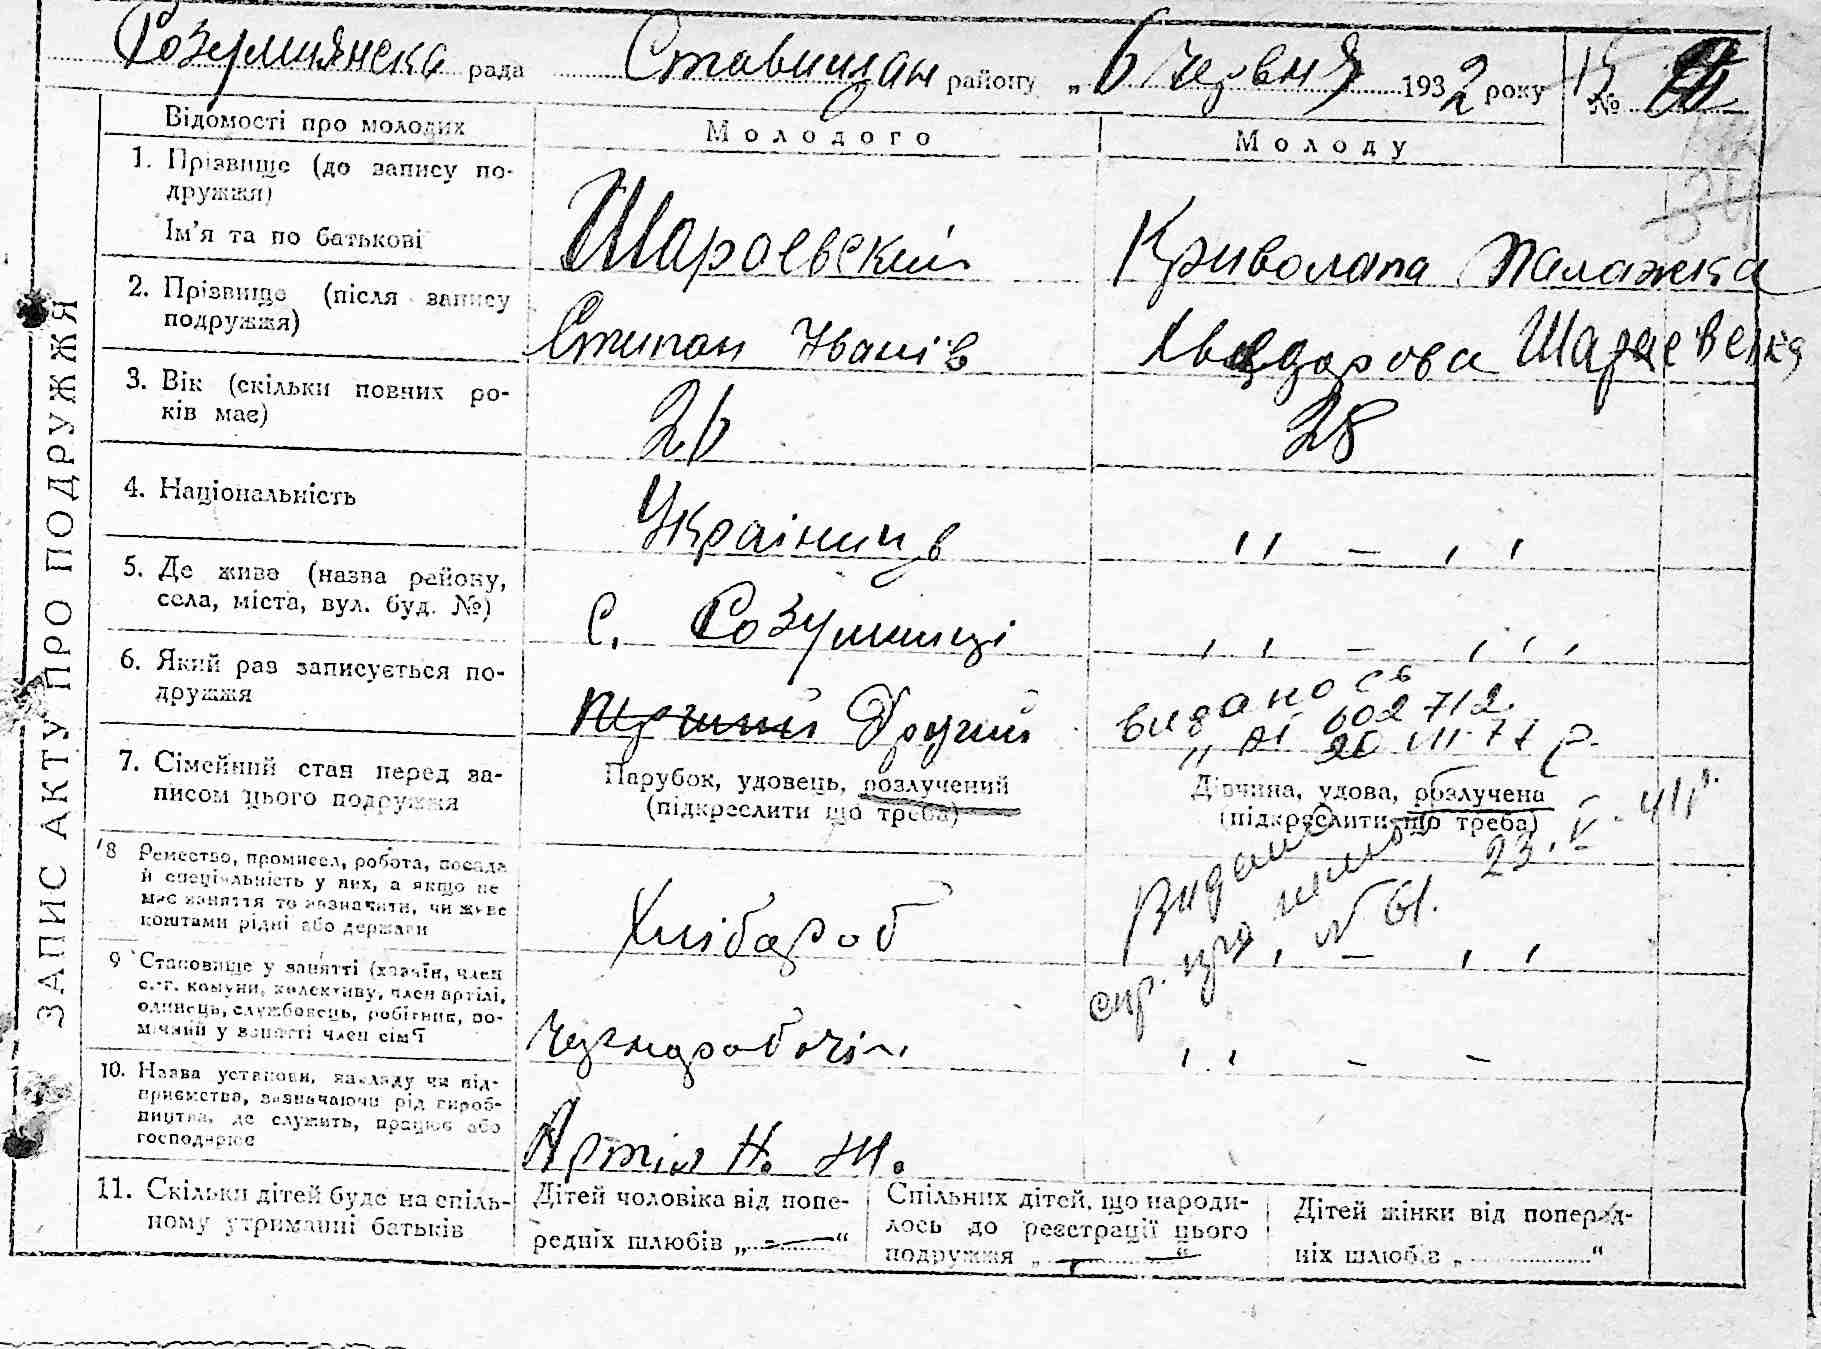 Розумнянска рада Ставищан району „ 6 червня 1932 року № 15
ЗАПИС АКТУ ПРО ПОДРУЖЖЯ
Відомості про молодих Молодого Молоду
1. Прізвище (до запису по-
дружжя)
Ім'я та по батькові
Шароевский Криволапа Палажка
2. Прізвище (після запису
подружжя)
Степан Іванів Шараевска
3. Вік (скільки повних ро-
ків має)
26 28
4. Національність
Українець " — "
5. Де живе (назва району,
села, міста, вул. буд. №)
с. Розумниці " — "
6. Який раз записується по-
дружжя
перший Другий
видано св
602712
20 VII-71 р.
7. Сімейний стан перед за-
писом цього подружжя
Парубок, удовець, розлучений
(підкреслити що треба)
Дівчина, удова, розлучена
(підкреслити що треба)
Видана
спр. про
№ 61. 23.V-41р.
8 Ремество, промисел, робота, посада
й спеціальність у них, а якщо не
має заняття то зазначити, чи живе
коштами рідні або держави
Хлібароб " — "
9 Становище у занятті (хазяїн, член
с.-г. комуни, колективу, член артілі,
одинець, службовець, робітник, по-
мічний у занятті член сім'ї
Чорнаробочій " — —
10. Назва установи, закладу чи під-
приємства, зазначаючи рід вироб-
ництва, де служить, працює або
господарює
Артіл Н. Ж.
11. Скільки дітей буде на спіль-
ному утриманні батьків
Дітей чоловіка від попе-
редніх шлюбів „ — “
Спільних дітей, що народи-
лось до реєстрації цього
подружжя „ — “
Дітей жінки від поперед-
ніх шлюбів „ “